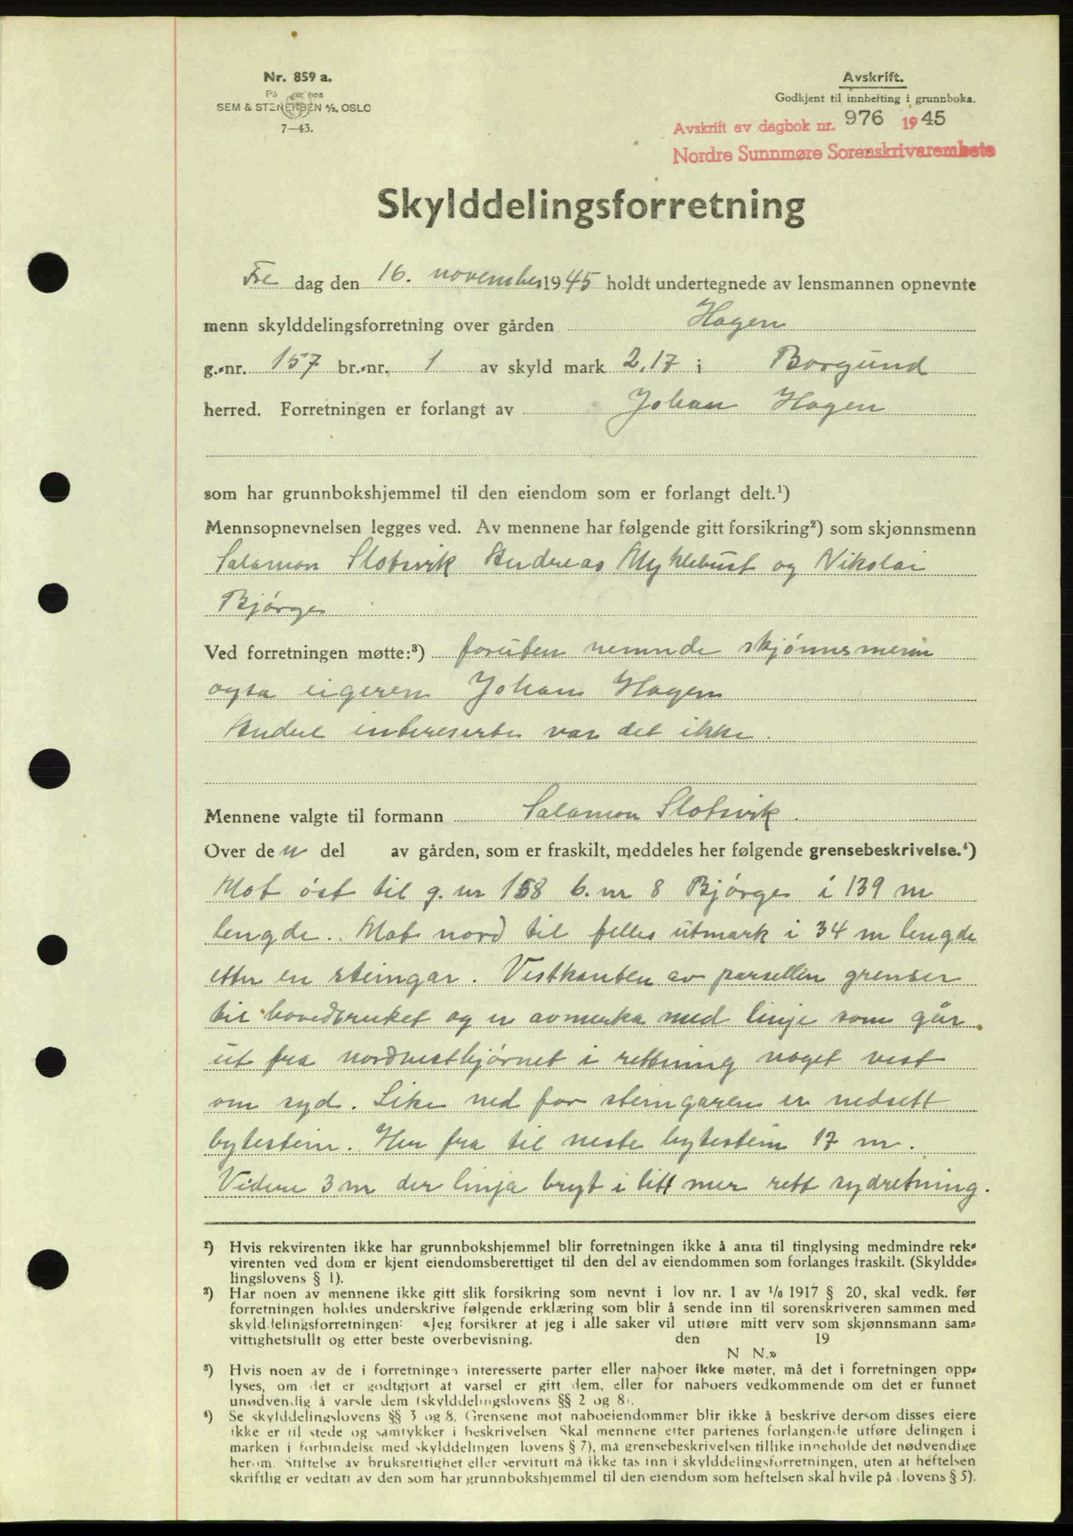 Nr. 859 a.
På lager hos
SEM & STENERSEN A/S, OSLO
7—43.
Avskrift.
Godkjent til innhefting i grunnboka.
Avskrift av dagbok nr. 976 1945
Nordre Sunnmøre Sorenskrivarembete
Skylddelingsforretning
Fre dag den 16. november 1945 holdt undertegnede av lensmannen opnevnte
menn skylddelingsforretning over gården Hagen
g.-nr. 157 br.-nr. 1 av skyld mark 2,17 i Borgund
herred. Forretningen er forlangt av Johan Hagen
som har grunnbokshjemmel til den eiendom som er forlangt delt.¹)
Mennsopnevnelsen legges ved. Av mennene har følgende gitt forsikring²) som skjønnsmenn
Salamon Slotsvik Andreas Myklebust og Nikolai
Bjørge
Ved forretningen møtte:³) foruten nemnde skjønnsmenn
også eigeren Johan Hagen
Andre intereserte var det ikke.
Mennene valgte til formann Salamon Slotsvik.
Over den del av gården, som er fraskilt, meddeles her følgende grensebeskrivelse.⁴)
Mot øst til g. nr 158 b. nr 8 Bjørge i 139 m
lengde. Mot nord til felles utmark i 34 m lengde
etter en steingar. Vestkanten av parsellen grenser
til hovedbruket og er avmerka med linje som går
ut fra nordvesthjørnet i rettning noget vest
om syd. Like ned for steingaren er nedsett
bytestein. Her fra til neste bytestein 17 m.
Videre 3 m der linja bryt i litt mer rett sydretning.
¹) Hvis rekvirenten ikke har grunnbokshjemmel blir forretningen ikke å anta til tinglysing medmindre rek-
virenten ved dom er kjent eiendomsberettiget til den del av eiendommen som forlanges fraskilt. (Skyldde-
lingslovens § 1).
²) Har noen av mennene ikke gitt slik forsikring som nevnt i lov nr. 1 av 1/6 1917 § 20, skal vedk. før
forretningen holdes underskrive følgende erklæring som blir å sende inn til sorenskriveren sammen med
skylddelingsforretningen: «Jeg forsikrer at jeg i alle saker vil utføre mitt verv som skjønnsmann sam-
vittighetsfullt og etter beste overbevisning. den 19
N N.»
³) Hvis noen av de i forretningen interesserte parter eller naboer ikke møter, må det i forretningen opp-
lyses, om det er godtgjort at varsel er gitt dem, eller for naboers vedkommende om det er funnet
unødvendig å varsle dem (skylddelingslovens §§ 2 og 8).
⁴) Se skylddelingslovens §§ 3 og 8. Grensene mot naboeiendommer blir ikke å beskrive dersom disses eiere
ikke er til stede og samtykker i beskrivelsen. Skal mennene etter partenes forlangende utføre delingen i
marken i forbindelse med skylddelingen (lovens § 7), må grensebeskrivelsen tillike inneholde det nødvendige
herom. Stiftelse av bruksrettighet eller servitutt må ikke tas inn i skylddelingsforretningen, uten at heftelsen
skriftlig er vedtatt av den som har grunnbokshjemmel til den eiendom som heftelsen skal hvile på (lovens § 5).